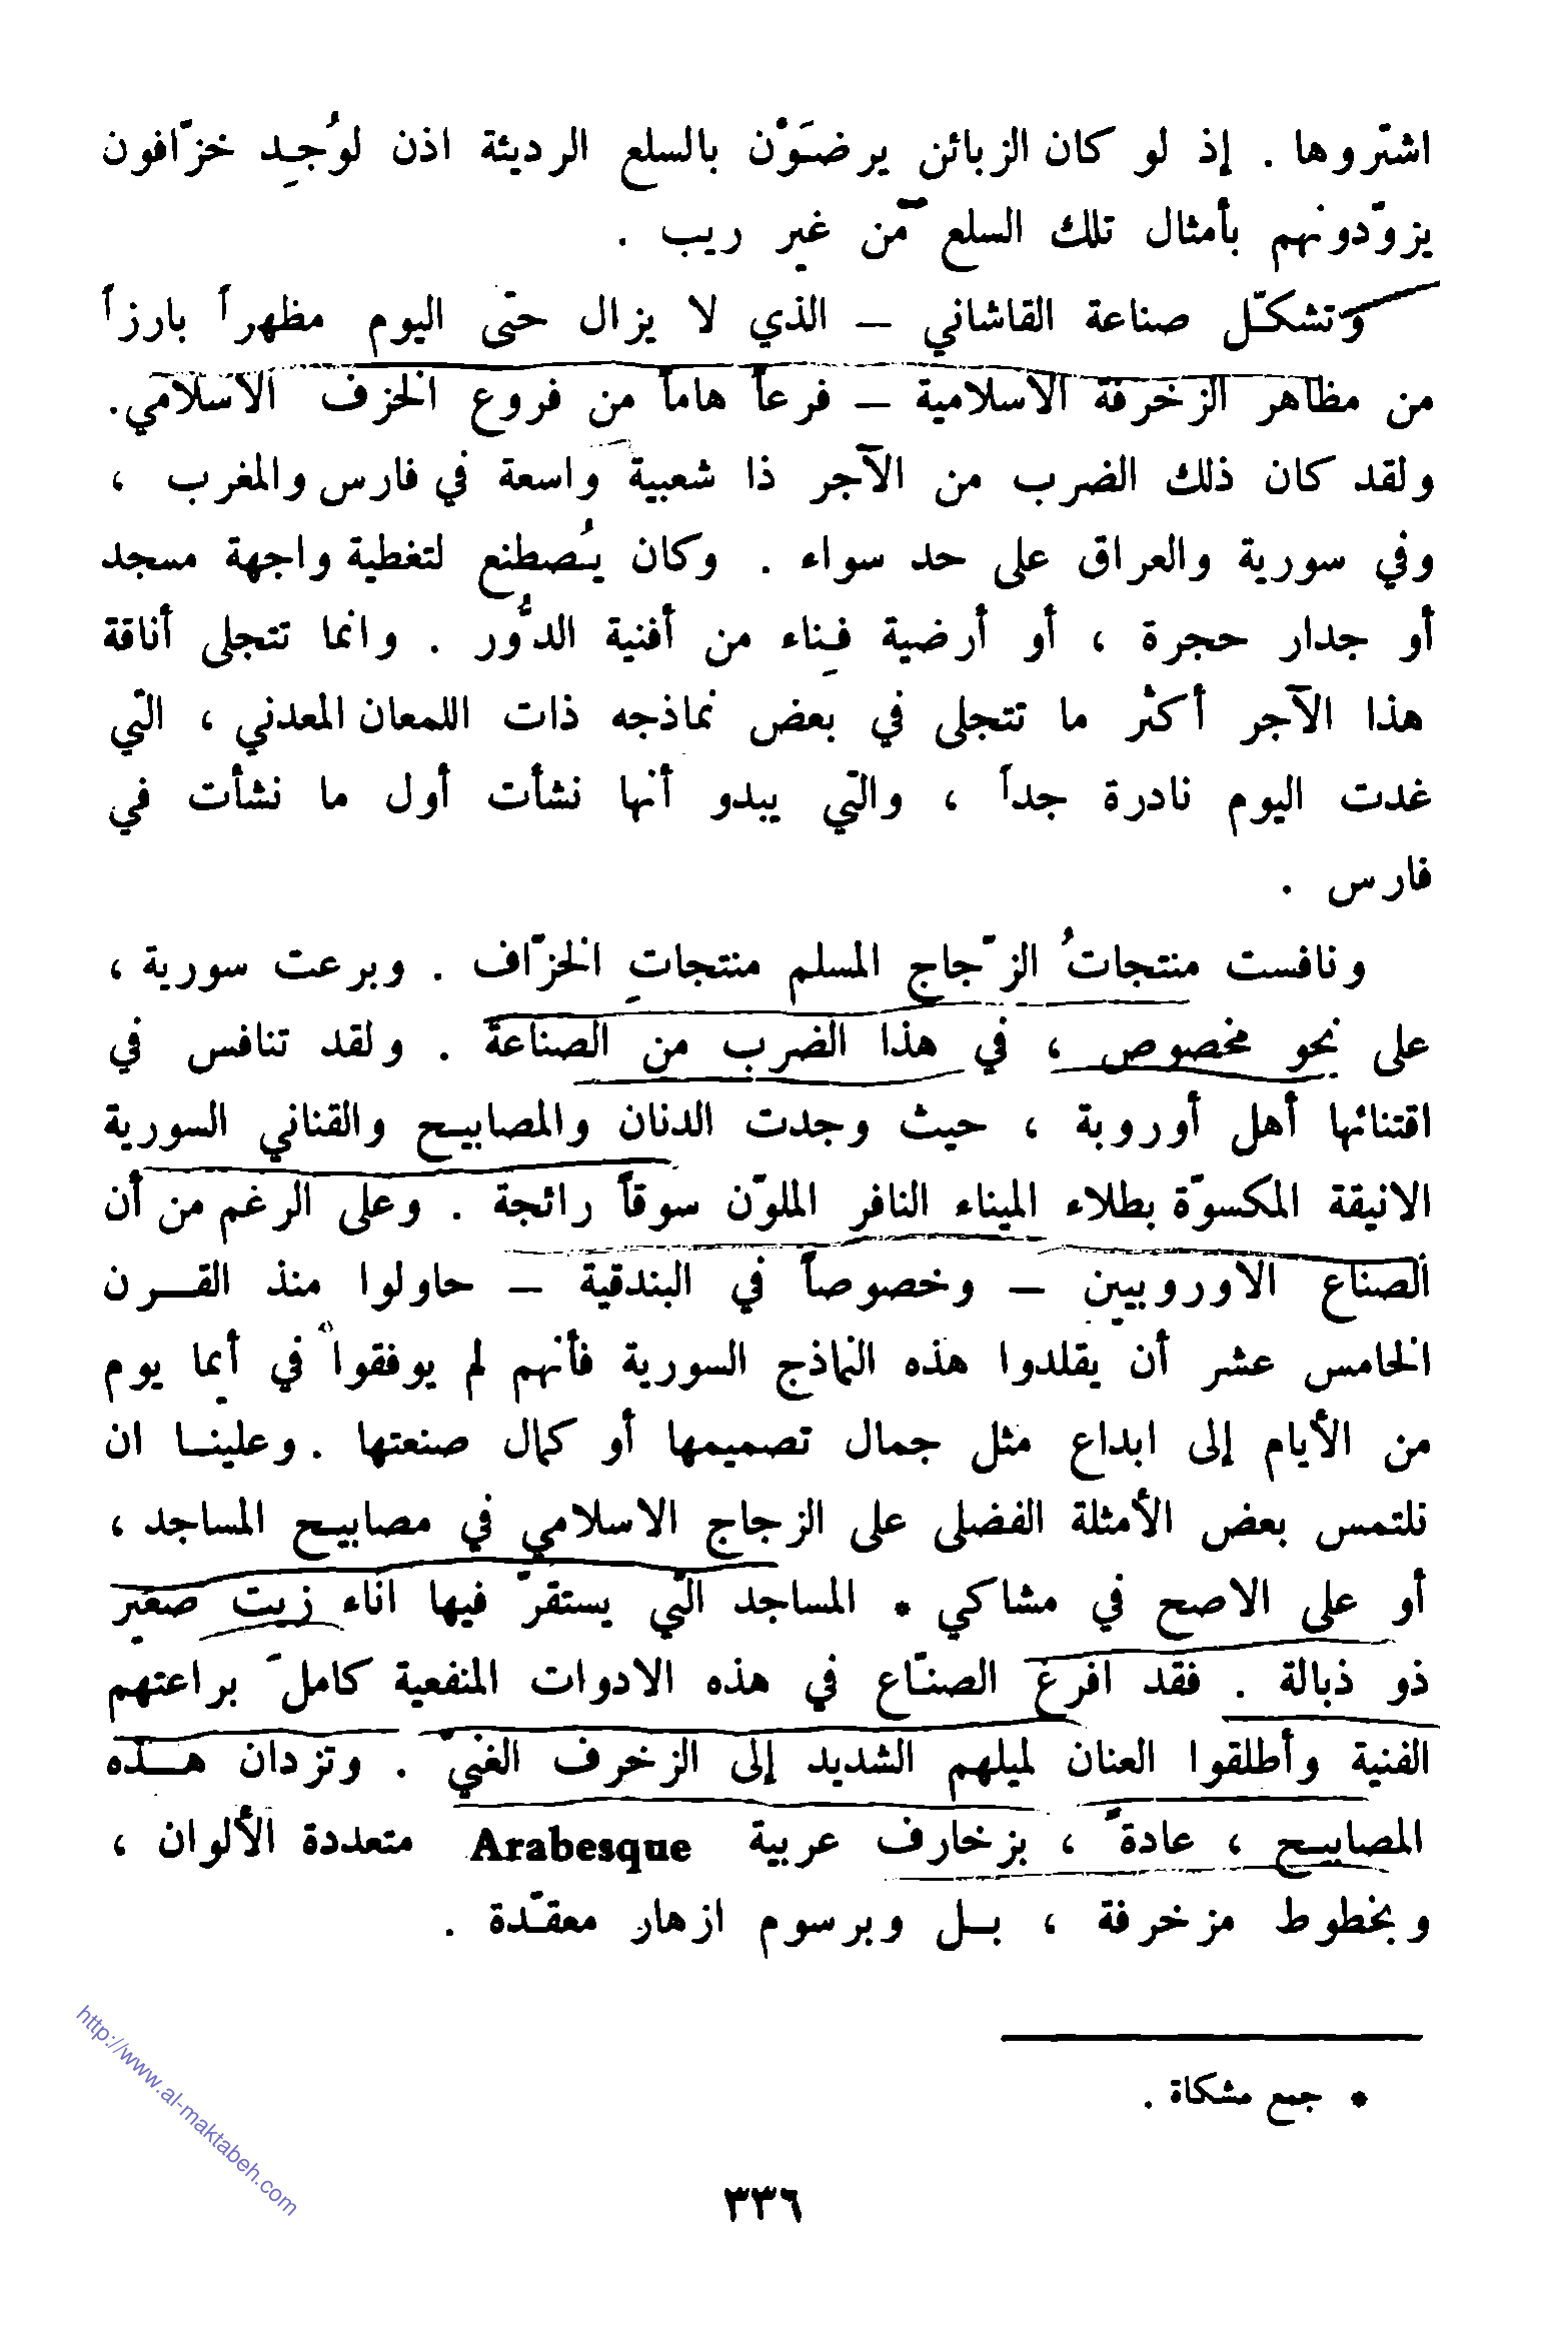 اشتروها . إذ لو كان الزبائن يرضَوْن بالسلع الرديئة اذن لوُجِد خزّافون
يزوّدونهم بأمثال تلك السلع من غير ريب .
وتشكّل صناعة القاشاني – الذي لا يزال حتى اليوم مظهراً بارزاً
من مظاهر الزخرفة الاسلامية – فرعاً هاماً من فروع الخزف الاسلامي.
ولقد كان ذلك الضرب من الآجر ذا شعبية واسعة في فارس والمغرب ،
وفي سورية والعراق على حد سواء . وكان يُصطنع لتغطية واجهة مسجد
أو جدار حجرة ، أو أرضية فِناء من أفنية الدُّور . وانما تتجلى أناقة
هذا الآجر أكثر ما تتجلى في بعض نماذجه ذات اللمعان المعدني ، التي
غدت اليوم نادرة جداً ، والتي يبدو أنها نشأت أول ما نشأت في
فارس .
ونافست منتجاتُ الزّجاج المسلم منتجاتِ الخزّاف . وبرعت سورية ،
على نحو مخصوص ، في هذا الضرب من الصناعة . ولقد تنافس في
اقتنائها أهل أوروبة ، حيث وجدت الدنان والمصابيح والقناني السورية
الانيقة المكسوّة بطلاء الميناء النافر الملوّن سوقاً رائجة . وعلى الرغم من أن
الصناع الاوروبيين – وخصوصاً في البندقية – حاولوا منذ القرن
الخامس عشر أن يقلدوا هذه النماذج السورية فأنهم لم يوفقوا في أيما يوم
من الأيام إلى ابداع مثل جمال تصميمها أو كمال صنعتها . وعلينا ان
نلتمس بعض الأمثلة الفضلى على الزجاج الاسلامي في مصابيح المساجد ،
أو على الاصح في مشاكي * المساجد التي يستقرّ فيها اناء زيت صغير
ذو ذبالة . فقد افرغ الصنّاع في هذه الادوات المنفعية كاملَ براعتهم
الفنية وأطلقوا العنان لميلهم الشديد إلى الزخرف الغنيّ . وتزدان هذه
المصابيح ، عادةً ، بزخارف عربية Arabesque متعددة الألوان ،
وبخطوط مزخرفة ، بل وبرسوم ازهار معقّدة .
* جمع مشكاة .
٣٣٦
http://www.al-maktabeh.com